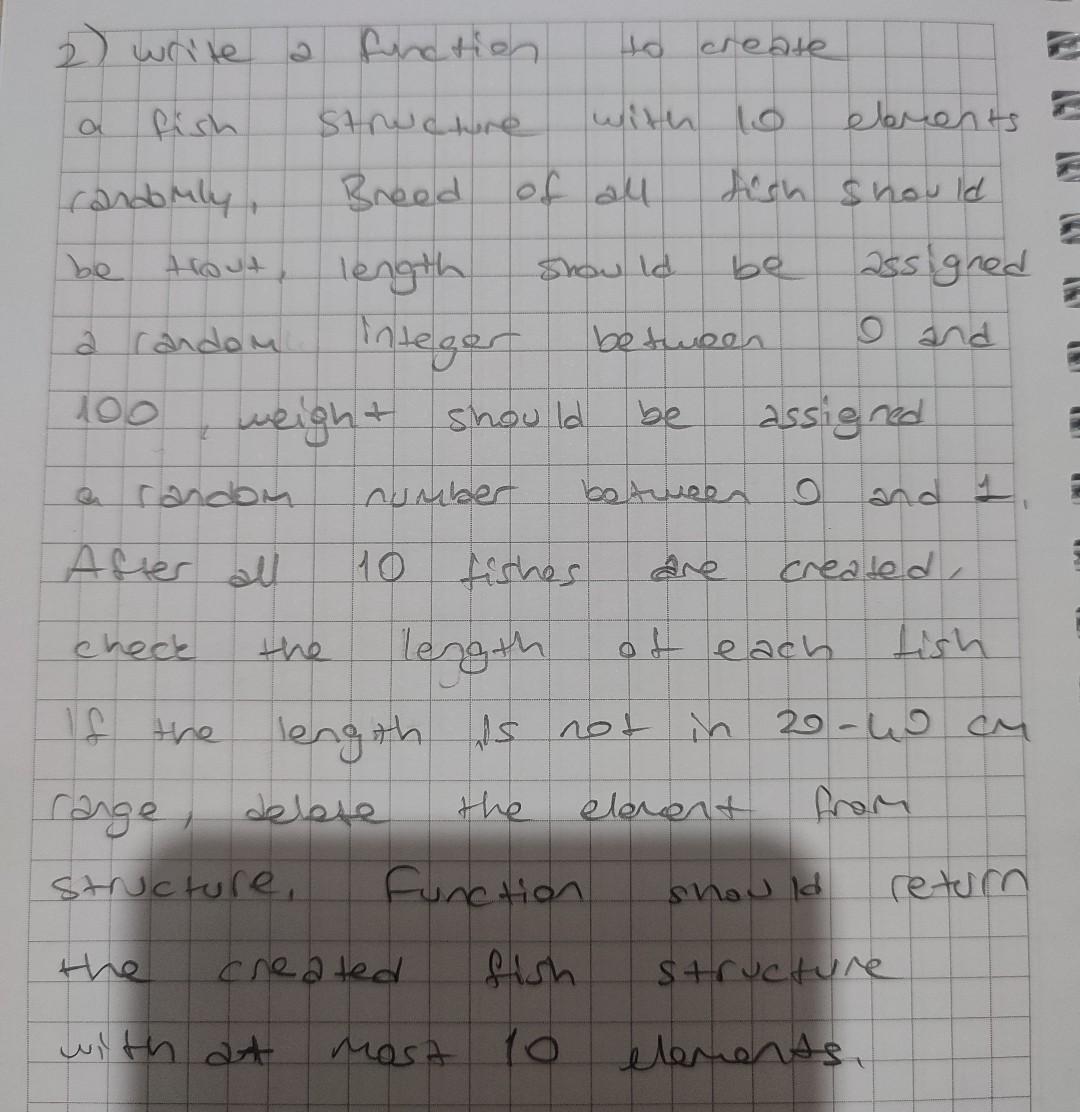 2) write a function to create
a fish structure with 10 elements
randomly. Breed of all fish should
be trout, length should be assigned
a random integer between 0 and
100, weight should be assigned
a random number between 0 and 1.
After all 10 fishes are created,
check the length of each fish
If the length is not in 20-40 cm
range, delete the element from
structure. Function should return
the created fish structure
with at most 10 elements.